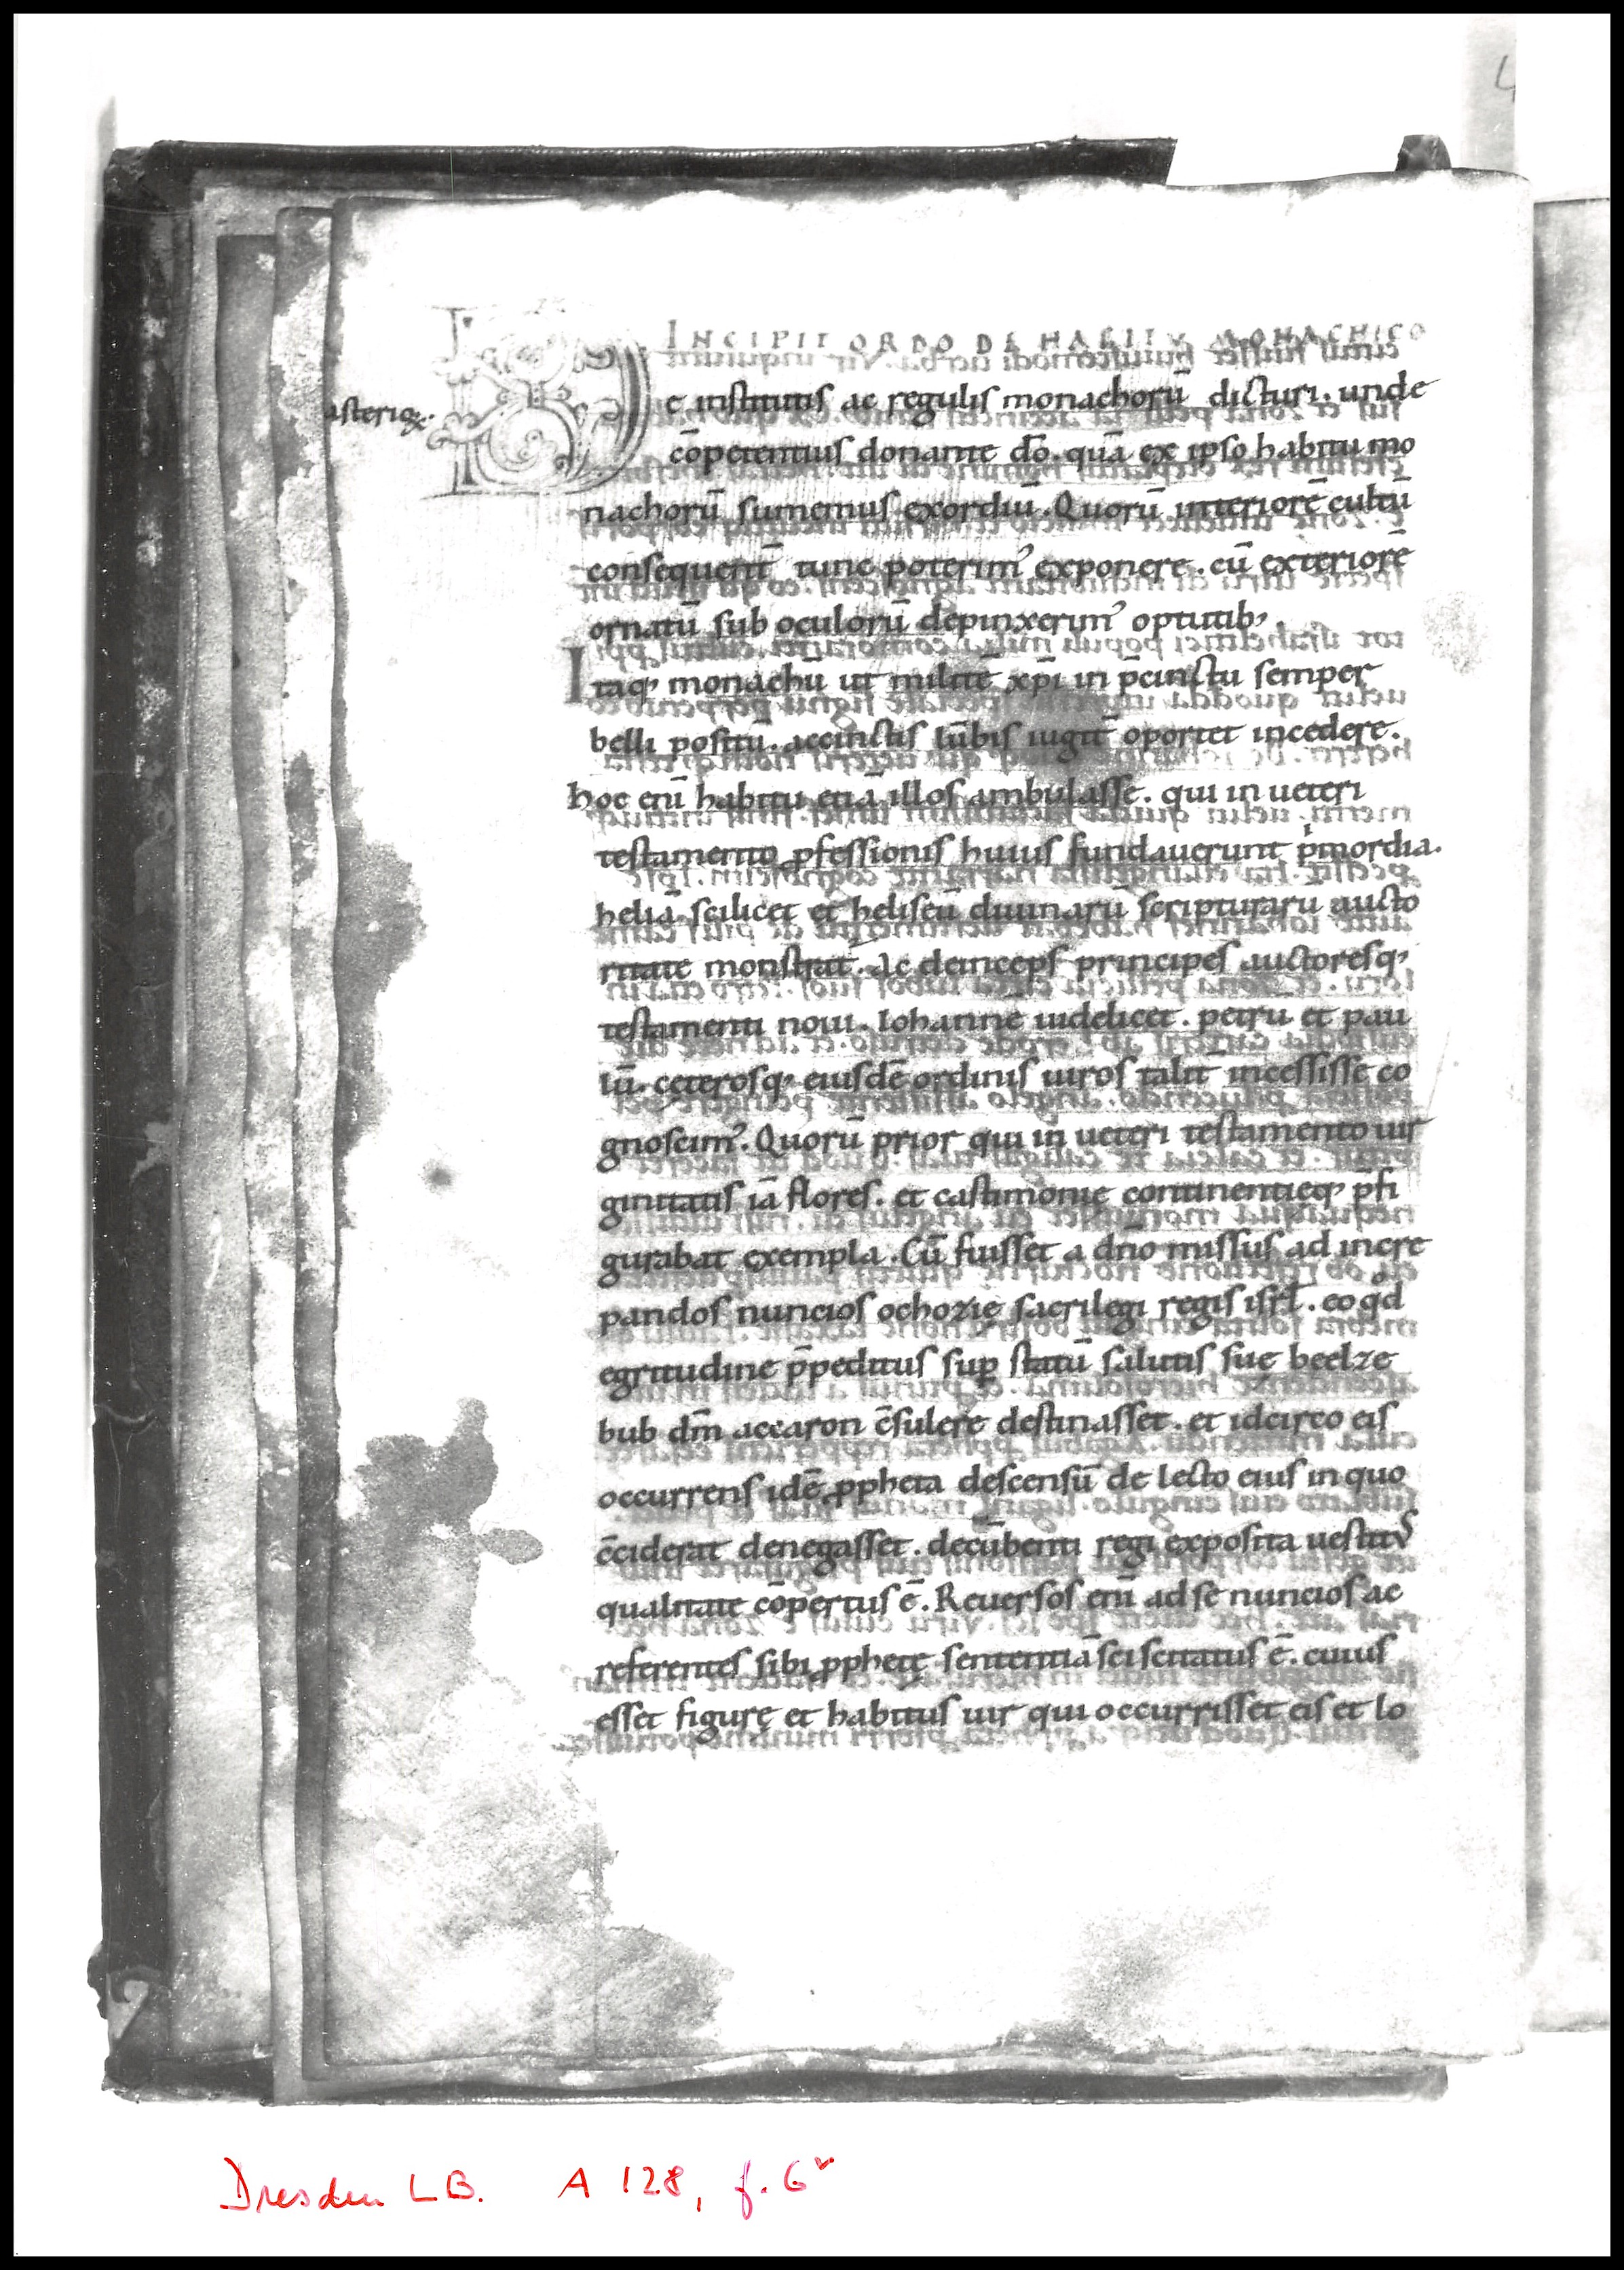 4
INCIPIT ORDO DE HABITV MONACHICO
asterioꝝ.
De institutis ac regulis monachorū dicturi. unde
cōpetentius donante dō. quā ex ipso habitu mo
nachorū sumemus exordiū. Quorū interiorē cultū
consequent̄ tunc poterim᾽ exponere. cū exteriorē
ornatū sub oculorū depinxerim᾽ optutib᾽.
Itaq᾽ monachū ut militē xp̄i in p̄cinctu semper
belli positū. accinctis lūbis iugit̄ oportet incedere.
hoc enī habitu etiā illos ambulasse. qui in ueteri
testamento ꝓfessionis huius fundauerunt pͥmordia.
heliā scilicet et heliseū diuinarū scripturarū aucto
ritate monstrat. Ac deinceps principes auctoresq᾽
testamenti noui. Iohannē uidelicet. petrū et pau
lū. cęterosq᾽ eiusdē ordinis uiros talit̄ incessisse co
gnoscim᾽. Quorū prior qui in ueteri testamento uir
ginitatis iā flores. et castimonię continentięq᾽ p̄fi
gurabat exempla. Cū fuisset a dn̄o missus ad incre
pandos nuncios ochozię sacrilegi regis isrl̄. eo qͦd
egritudine p̄peditus suꝑ statū salutis suę beelze
bub dm̄ accaron c̄sulere destinasset. et idcirco eis
occurrens idē ꝓpheta descensū de lecto eius in quo
c̄ciderat denegasset. decūbenti regi exposita uestitus
qualitate cōpertus ē. Reuersos enī ad se nuncios ac
referentes sibi ꝓphetę sententiā sciscitatus ē. cuius
esset figurę et habitus uir qui occurrisset eis et lo
Dresden LB. A 128, f. 6ᵛ